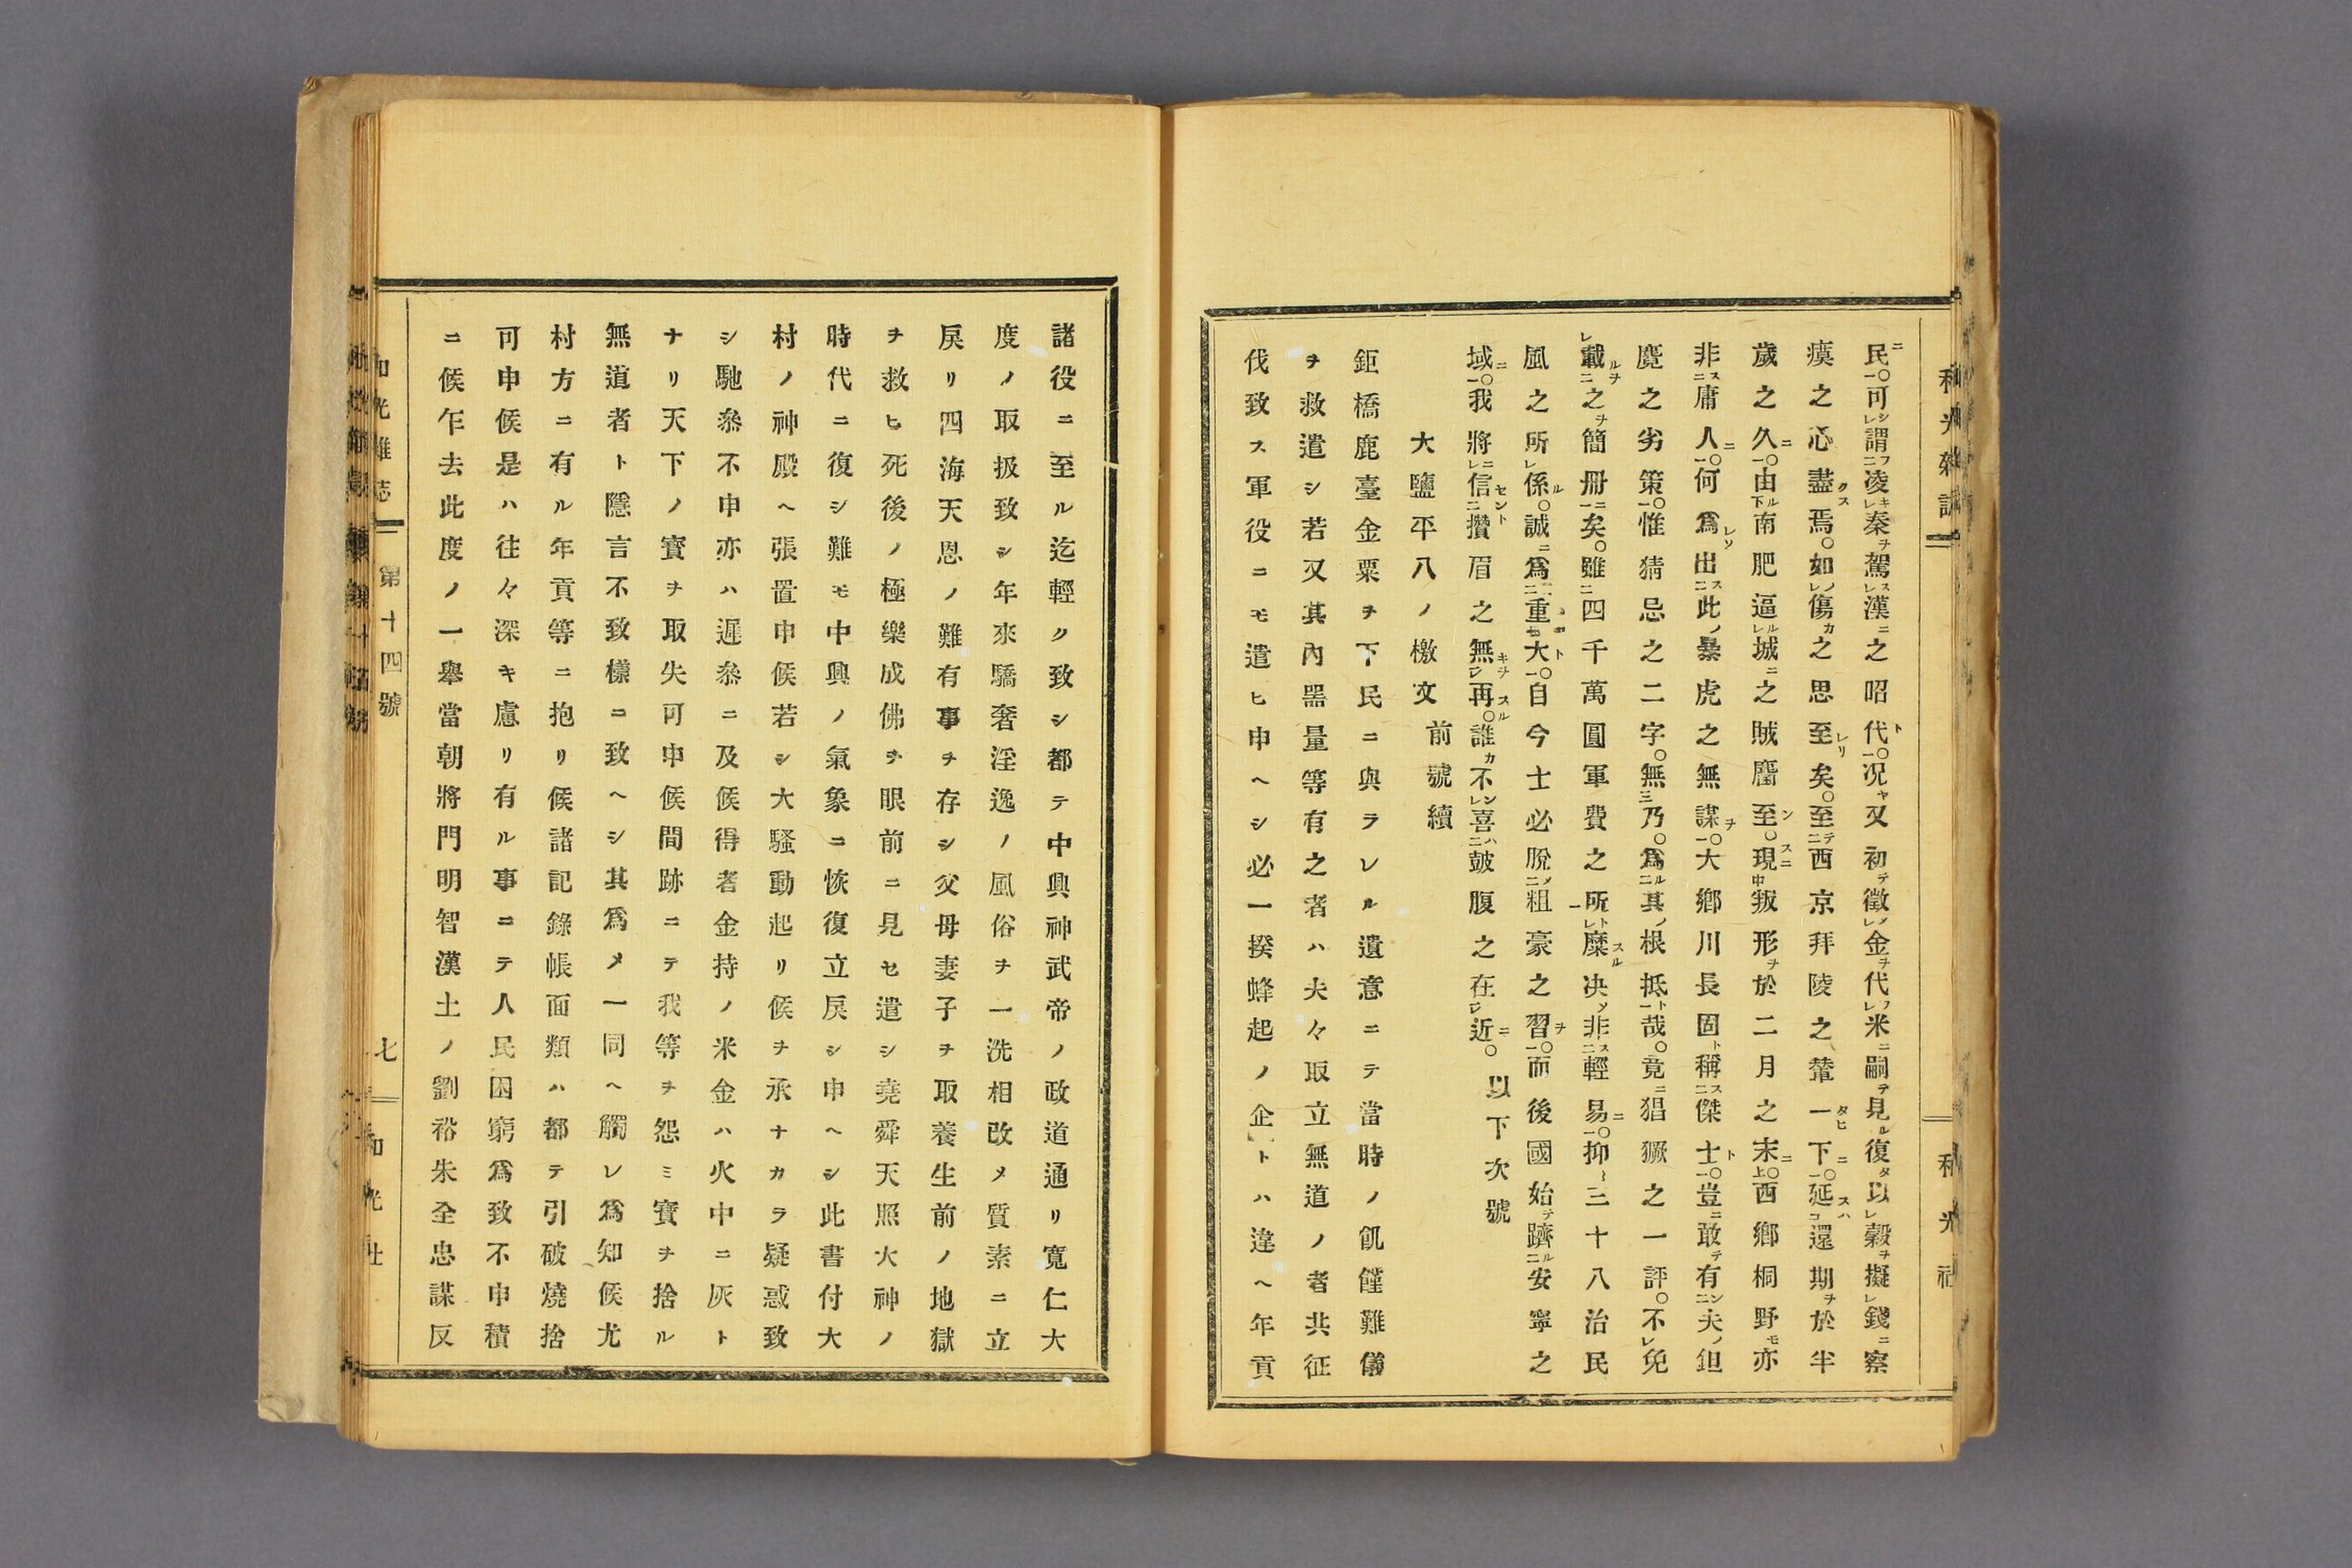 和光雜誌
和光社
民。可謂凌秦駕漢之昭代。况又初徵金代米嗣見復以穀擬錢察
瘼之心盡焉。如傷之思至矣。至西京拜陵之輦一下。延還期於半
歲之久。由南肥逼城之賊麕至。現叛形於二月之末。西鄕桐野亦
非庸人。何爲出此暴虎之無謀。大鄕川長固稱傑士。豈敢有夫鉏
麑之劣策。惟猜忌之二字。無乃。爲其根抵哉。竟猖獗之一評。不免
載之簡册矣。雖四千萬圓軍費之所糜决非輕易。抑三十八治民
風之所係。誠爲重大。自今士必脫粗豪之習。而後國始躋安寧之
域。我將信攢眉之無再。誰不喜鼓腹之在近。以下次號
大鹽平八ノ檄文 前號續
鉅橋鹿臺金粟ヲ下民ニ與ラレル遺意ニテ當時ノ飢饉難儀
ヲ救遣シ若又其內器量等有之者ハ夫々取立無道ノ者共征
伐致ス軍役ニモ遣ヒ申ヘシ必一揆蜂起ノ企トハ違ヘ年貢
諸役ニ至ル迄輕ク致シ都テ中興神武帝ノ政道通リ寬仁大
度ノ取扱致シ年來驕奢淫逸ノ風俗ヲ一洗相改メ質素ニ立
戾リ四海天恩ノ難有事ヲ存シ父母妻子ヲ取養生前ノ地獄
ヲ救ヒ死後ノ極樂成佛ヲ眼前ニ見セ遣シ堯舜天照大神ノ
時代ニ復シ難モ中興ノ氣象ニ恢復立戾シ申ヘシ此書付大
村ノ神殿ヘ張置申候若シ大騷動起リ候ヲ承ナカラ疑惑致
シ馳參不申亦ハ遲參ニ及候得者金持ノ米金ハ火中ニ灰ト
ナリ天下ノ寳ヲ取失可申候間跡ニテ我等ヲ怨ミ寳ヲ捨ル
無道者ト隱言不致樣ニ致ヘシ其爲メ一同ヘ觸レ爲知候尤
村方ニ有ル年貢等ニ抱リ候諸記錄帳面類ハ都テ引破燒捨
可申候是ハ往々深キ慮リ有ル事ニテ人民困窮爲致不申積
ニ候乍去此度ノ一擧當朝將門明智漢土ノ劉裕朱全忠謀反
和光雜誌 第十四號 七 和光社